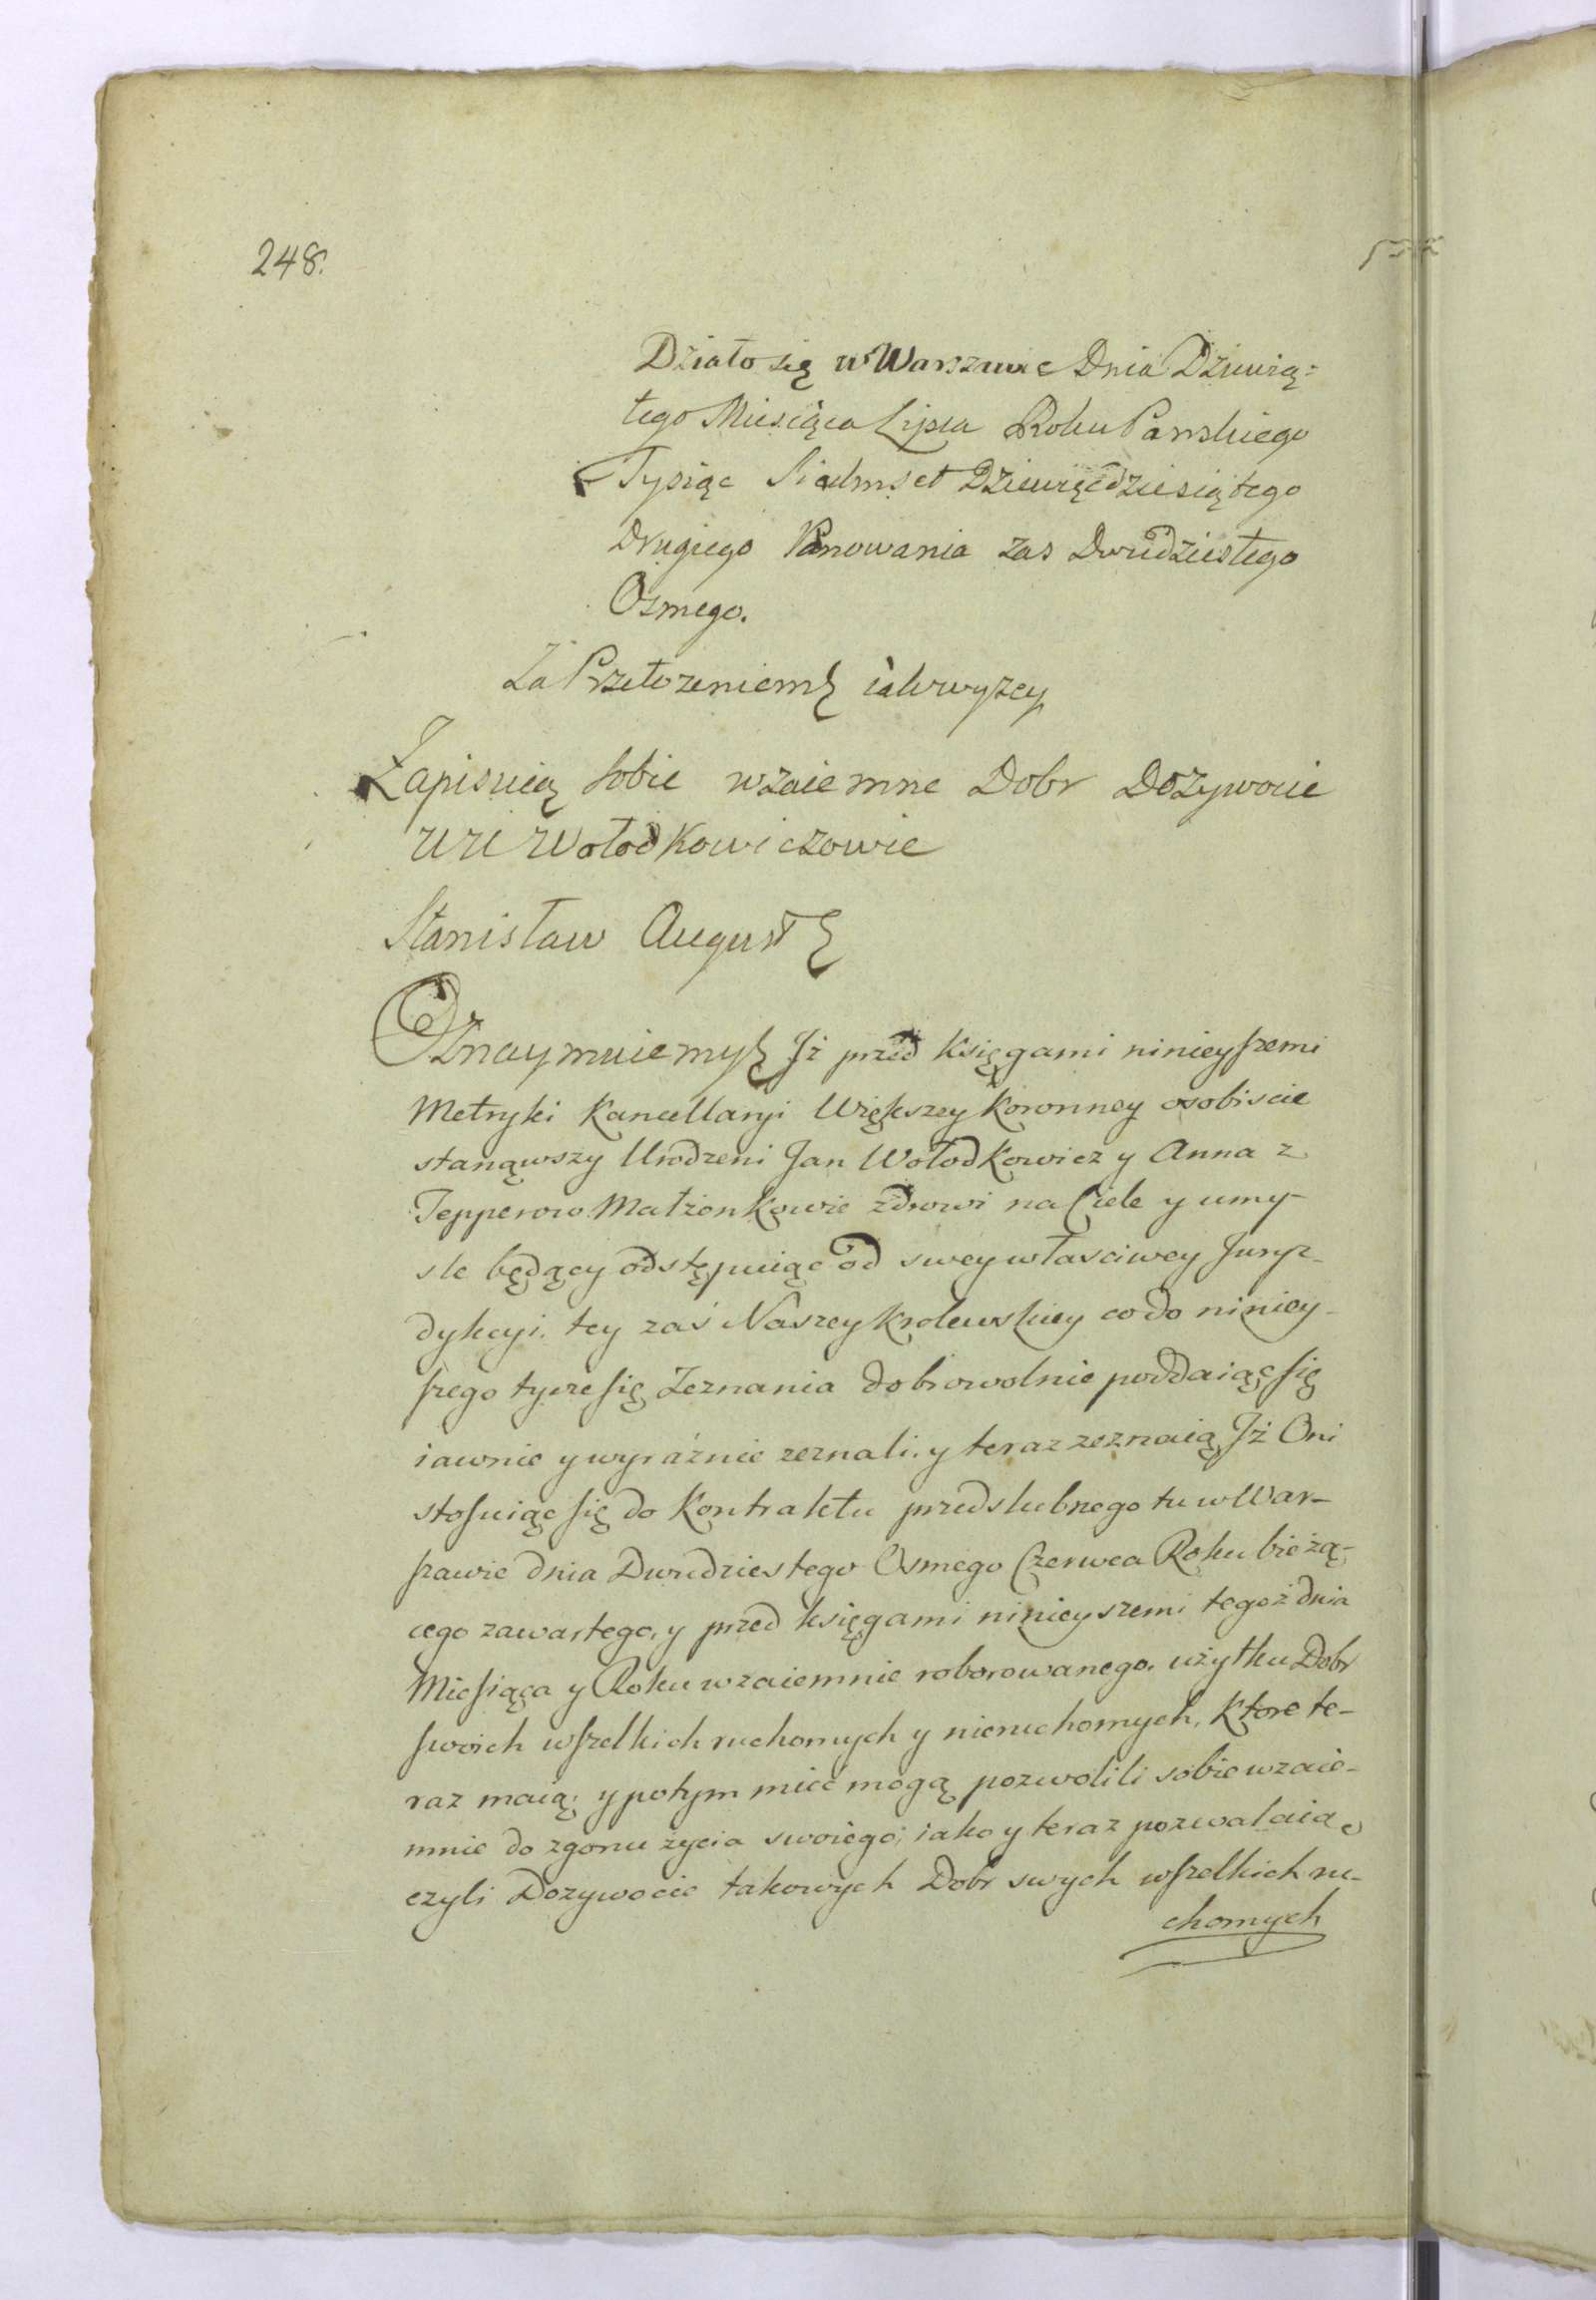 248.
Działo się w Warszawie Dnia Dziewią=
tego Miesiąca Lipca Roku Panskiego
Tysiąc Siedmset Dziewięćdziesiątego
Drugiego Panowania zas Dwudziestego
Osmego.
Za Przełozeniem iak wyzey
Zapisuią sobie wzaiemne Dobr Dozywocie
UU Wołodkowiczowie
Stanisław August
Oznaymuiemy Jż przed Księgami ninieyszemi
Metryki Kancellaryi Większey Koronney osobiscie
stanąwszy Urodzeni Jan Wołodkowicz y Anna z
Tepperow Małżonkowie zdrowi na Ciele y umy-
sle będący odstępuiąc od swey własciwey Juryz-
dykcyi. tey zaś Naszey Krolewskiey co do niniey-
szego tycze się Zeznania dobrowolnie poddaiąc się
iawnie y wyráznie zeznali. y teraz zeznaią, Jż Oni
stosuiąc się do Kontraktu przedslubnego tu w War-
szawie dnia Dwudziestego Osmego Czerwca Roku bieżą-
cego zawartego, y przed księgami ninieyszemi tegoż dnia
Miesiąca y Roku wzaiemnie roborowanego, użytku Dobr
swoich wszelkich ruchomych y nieruchomych, Ktore te-
raz maią, y potym mieć mogą pozwolili sobie wzaie-
mnie do zgonu życia swoiego; iako y teraz pozwalaią,
czyli Dozywocie takowych Dobr swych wszelkich ru-
chomych